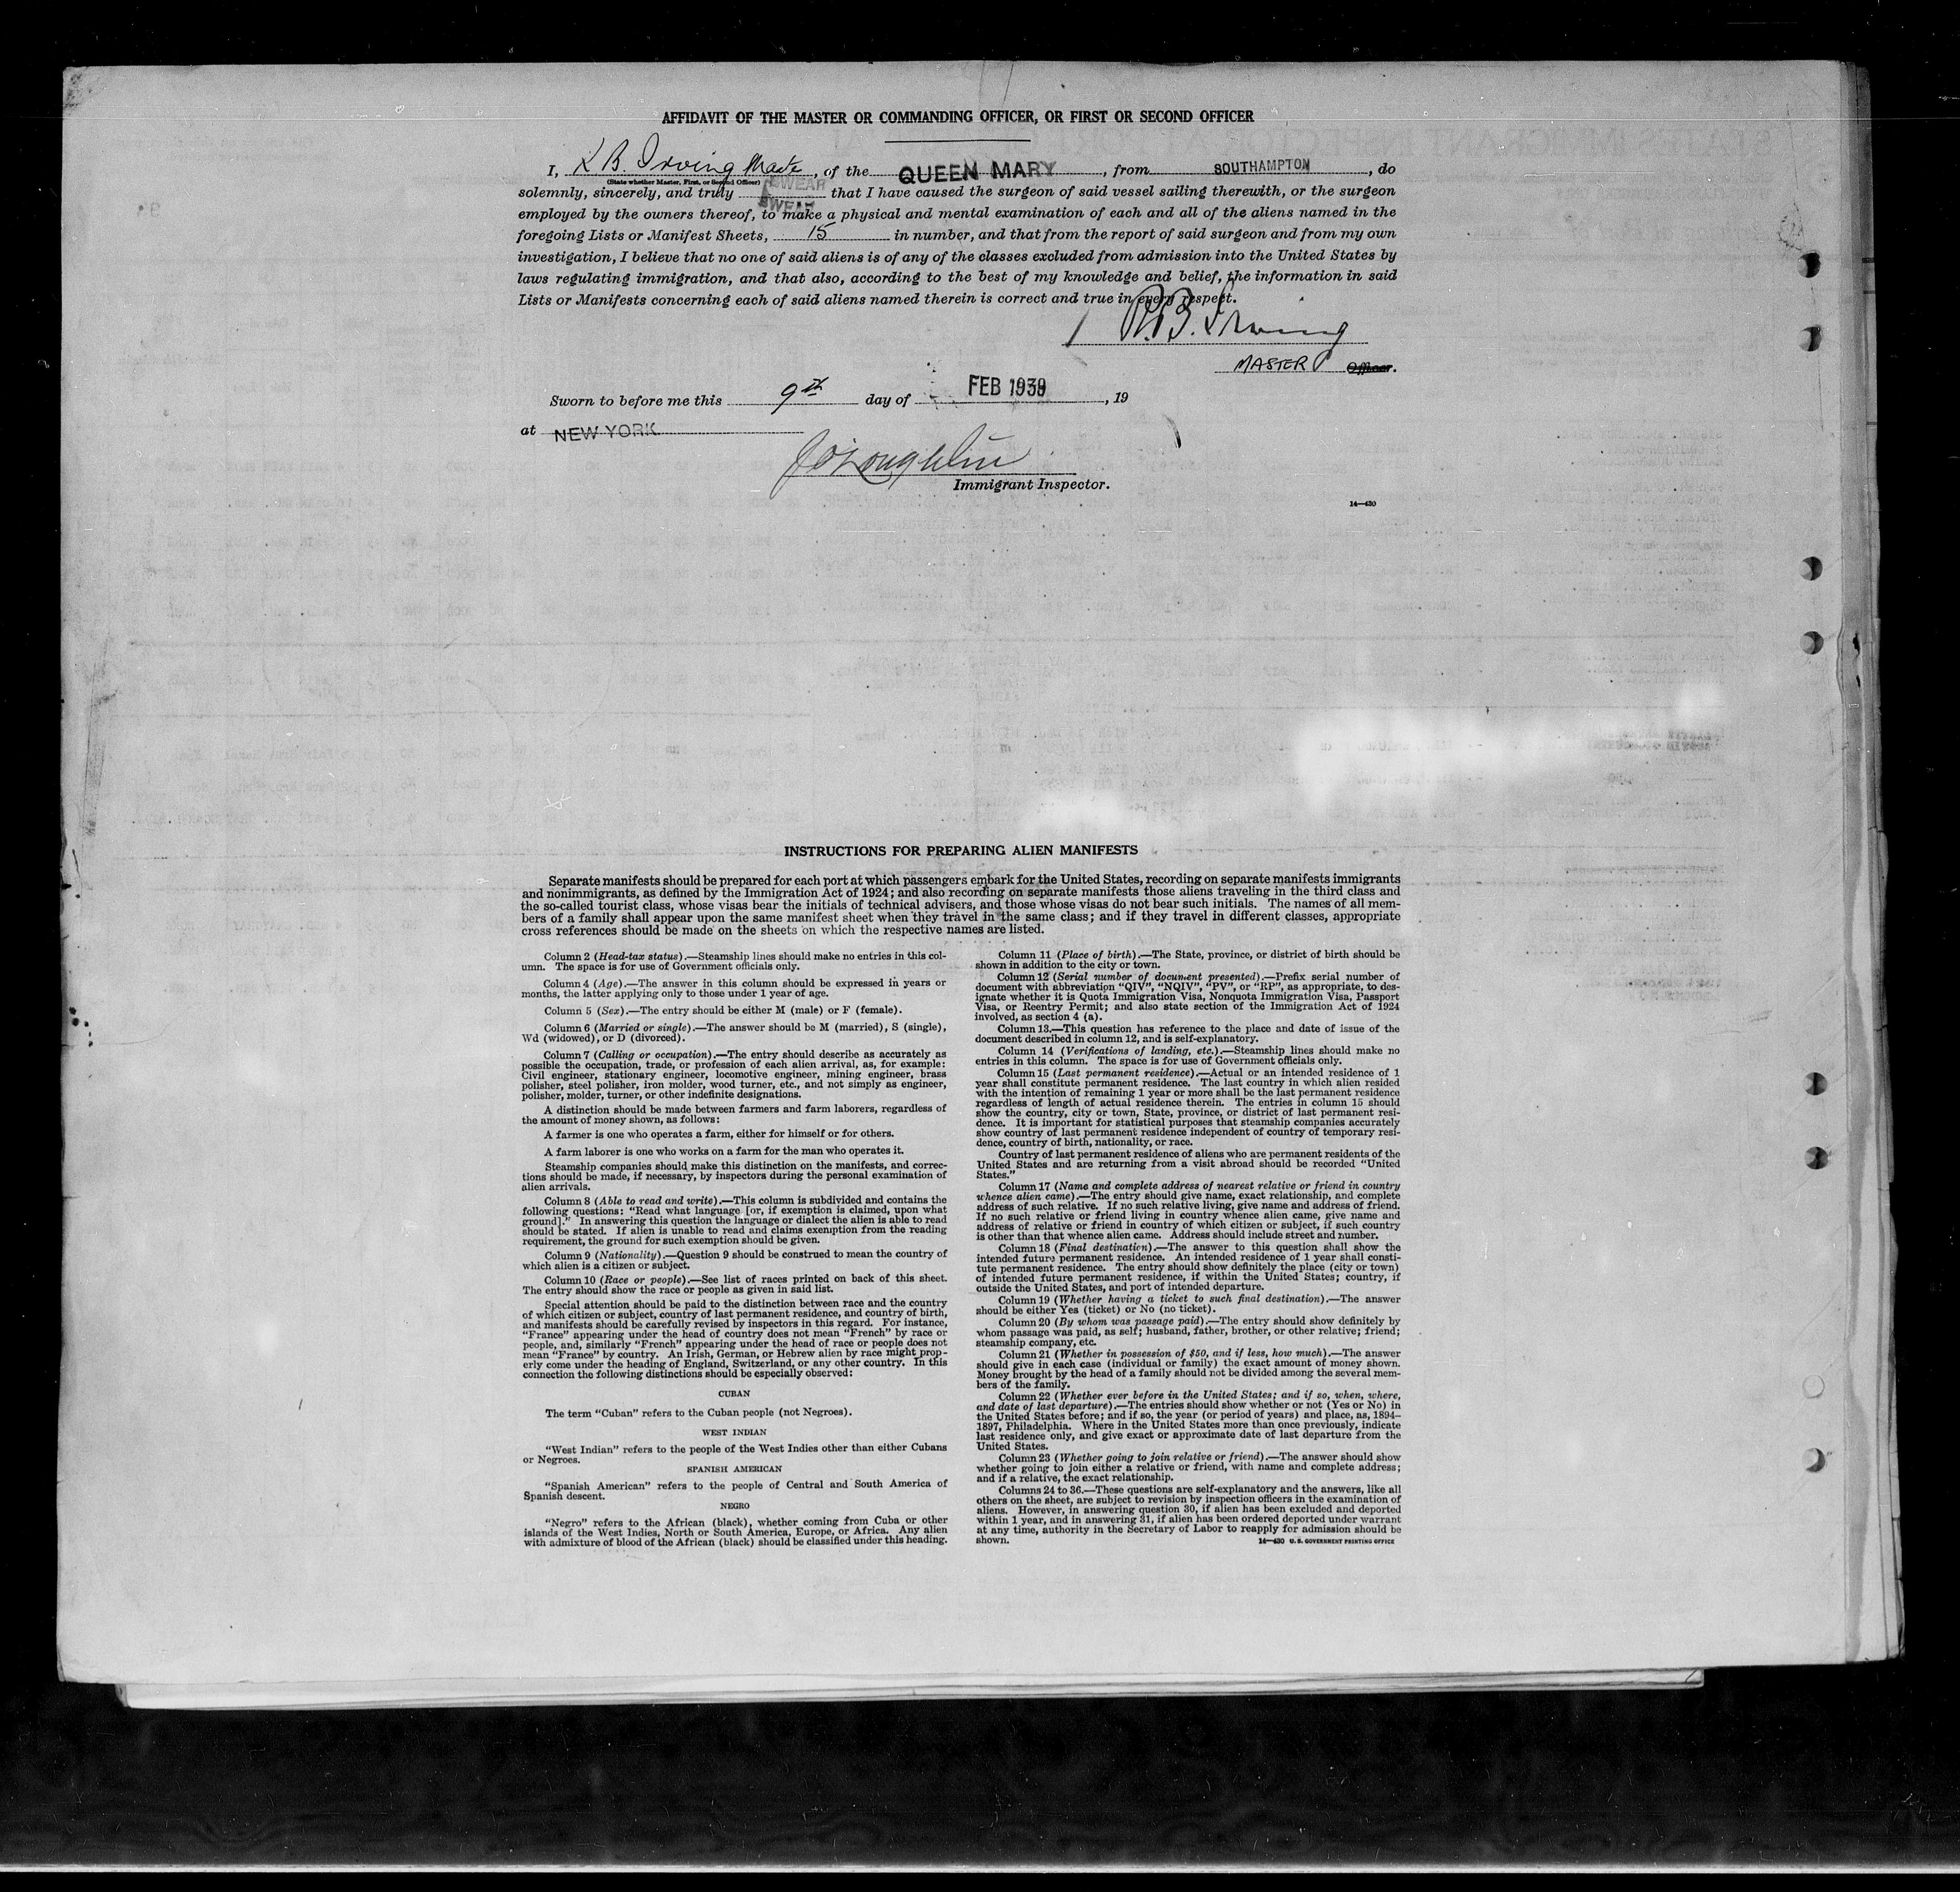 AFFIDAVIT OF THE MASTER OR COMMANDING OFFICER, OR FIRST OR SECOND OFFICER
I, R B. Irving Master, of the QUEEN MARY, from SOUTHAMPTON, do
(State whether Master, First, or Second Officer)
solemnly, sincerely, and truly SWEAR that I have caused the surgeon of said vessel sailing therewith, or the surgeon
employed by the owners thereof, to make a physical and mental examination of each and all of the aliens named in the
foregoing Lists or Manifest Sheets, 15 in number, and that from the report of said surgeon and from my own
investigation, I believe that no one of said aliens is of any of the classes excluded from admission into the United States by
laws regulating immigration, and that also, according to the best of my knowledge and belief, the information in said
Lists or Manifests concerning each of said aliens named therein is correct and true in every respect.
R.B. Irving
MASTER Officer.
Sworn to before me this 9th day of FEB 1939, 19
at NEW YORK
Immigrant Inspector.
14—430
INSTRUCTIONS FOR PREPARING ALIEN MANIFESTS
Separate manifests should be prepared for each port at which passengers embark for the United States, recording on separate manifests immigrants
and nonimmigrants, as defined by the Immigration Act of 1924; and also recording on separate manifests those aliens traveling in the third class and
the so-called tourist class, whose visas bear the initials of technical advisers, and those whose visas do not bear such initials. The names of all mem-
bers of a family shall appear upon the same manifest sheet when they travel in the same class; and if they travel in different classes, appropriate
cross references should be made on the sheets on which the respective names are listed.
Column 2 (Head-tax status).—Steamship lines should make no entries in this col-
umn. The space is for use of Government officials only.
Column 4 (Age).—The answer in this column should be expressed in years or
months, the latter applying only to those under 1 year of age.
Column 5 (Sex).—The entry should be either M (male) or F (female).
Column 6 (Married or single).—The answer should be M (married), S (single),
Wd (widowed), or D (divorced).
Column 7 (Calling or occupation).—The entry should describe as accurately as
possible the occupation, trade, or profession of each alien arrival, as, for example:
Civil engineer, stationary engineer, locomotive engineer, mining engineer, brass
polisher, steel polisher, iron molder, wood turner, etc., and not simply as engineer,
polisher, molder, turner, or other indefinite designations.
A distinction should be made between farmers and farm laborers, regardless of
the amount of money shown, as follows:
A farmer is one who operates a farm, either for himself or for others.
A farm laborer is one who works on a farm for the man who operates it.
Steamship companies should make this distinction on the manifests, and correc-
tions should be made, if necessary, by inspectors during the personal examination of
alien arrivals.
Column 8 (Able to read and write).—This column is subdivided and contains the
following questions: “Read what language [or, if exemption is claimed, upon what
ground].” In answering this question the language or dialect the alien is able to read
should be stated. If alien is unable to read and claims exemption from the reading
requirement, the ground for such exemption should be given.
Column 9 (Nationality).—Question 9 should be construed to mean the country of
which alien is a citizen or subject.
Column 10 (Race or people).—See list of races printed on back of this sheet.
The entry should show the race or people as given in said list.
Special attention should be paid to the distinction between race and the country
of which citizen or subject, country of last permanent residence, and country of birth,
and manifests should be carefully revised by inspectors in this regard. For instance,
“France” appearing under the head of country does not mean “French” by race or
people, and, similarly “French” appearing under the head of race or people does not
mean “France” by country. An Irish, German, or Hebrew alien by race might prop-
erly come under the heading of England, Switzerland, or any other country. In this
connection the following distinctions should be especially observed:
CUBAN
The term “Cuban” refers to the Cuban people (not Negroes).
WEST INDIAN
“West Indian” refers to the people of the West Indies other than either Cubans
or Negroes.
SPANISH AMERICAN
“Spanish American” refers to the people of Central and South America of
Spanish descent.
NEGRO
“Negro” refers to the African (black), whether coming from Cuba or other
islands of the West Indies, North or South America, Europe, or Africa. Any alien
with admixture of blood of the African (black) should be classified under this heading.
Column 11 (Place of birth).—The State, province, or district of birth should be
shown in addition to the city or town.
Column 12 (Serial number of document presented).—Prefix serial number of
document with abbreviation “QIV”, “NQIV”, “PV”, or “RP”, as appropriate, to des-
ignate whether it is Quota Immigration Visa, Nonquota Immigration Visa, Passport
Visa, or Reentry Permit; and also state section of the Immigration Act of 1924
involved, as section 4 (a).
Column 13.—This question has reference to the place and date of issue of the
document described in column 12, and is self-explanatory.
Column 14 (Verifications of landing, etc.).—Steamship lines should make no
entries in this column. The space is for use of Government officials only.
Column 15 (Last permanent residence).—Actual or an intended residence of 1
year shall constitute permanent residence. The last country in which alien resided
with the intention of remaining 1 year or more shall be the last permanent residence
regardless of length of actual residence therein. The entries in column 15 should
show the country, city or town, State, province, or district of last permanent resi-
dence. It is important for statistical purposes that steamship companies accurately
show country of last permanent residence independent of country of temporary resi-
dence, country of birth, nationality, or race.
Country of last permanent residence of aliens who are permanent residents of the
United States and are returning from a visit abroad should be recorded “United
States.”
Column 17 (Name and complete address of nearest relative or friend in country
whence alien came).—The entry should give name, exact relationship, and complete
address of such relative. If no such relative living, give name and address of friend.
If no such relative or friend living in country whence alien came, give name and
address of relative or friend in country of which citizen or subject, if such country
is other than that whence alien came. Address should include street and number.
Column 18 (Final destination).—The answer to this question shall show the
intended future permanent residence. An intended residence of 1 year shall consti-
tute permanent residence. The entry should show definitely the place (city or town)
of intended future permanent residence, if within the United States; country, if
outside the United States, and port of intended departure.
Column 19 (Whether having a ticket to such final destination).—The answer
should be either Yes (ticket) or No (no ticket).
Column 20 (By whom was passage paid).—The entry should show definitely by
whom passage was paid, as self; husband, father, brother, or other relative; friend;
steamship company, etc.
Column 21 (Whether in possession of $50, and if less, how much).—The answer
should give in each case (individual or family) the exact amount of money shown.
Money brought by the head of a family should not be divided among the several mem-
bers of the family.
Column 22 (Whether ever before in the United States; and if so, when, where,
and date of last departure).—The entries should show whether or not (Yes or No) in
the United States before; and if so, the year (or period of years) and place, as, 1894–
1897, Philadelphia. Where in the United States more than once previously, indicate
last residence only, and give exact or approximate date of last departure from the
United States.
Column 23 (Whether going to join relative or friend).—The answer should show
whether going to join either a relative or friend, with name and complete address;
and if a relative, the exact relationship.
Columns 24 to 36.—These questions are self-explanatory and the answers, like all
others on the sheet, are subject to revision by inspection officers in the examination of
aliens. However, in answering question 30, if alien has been excluded and deported
within 1 year, and in answering 31, if alien has been ordered deported under warrant
at any time, authority in the Secretary of Labor to reapply for admission should be
shown.
14—430 U. S. GOVERNMENT PRINTING OFFICE